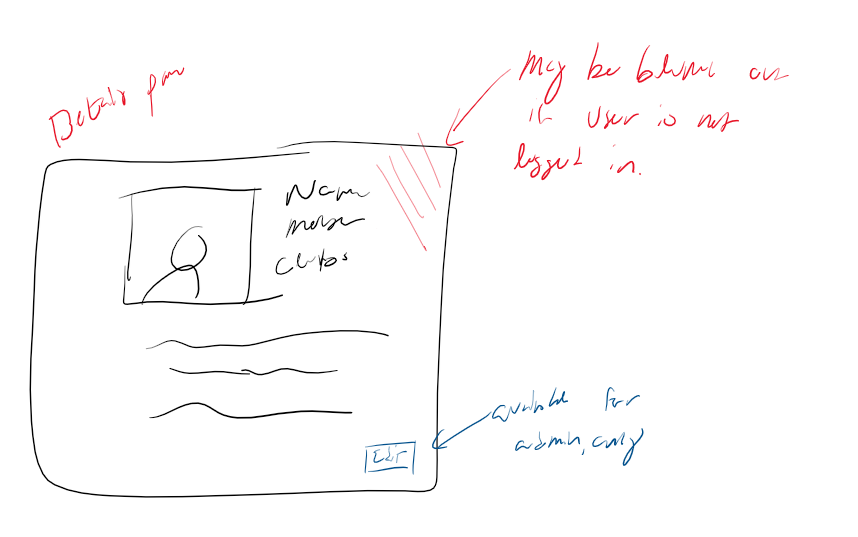 Details pane
May be blurred out
if user is not
logged in.
Name
Clubs
Edit
available for
admin, only